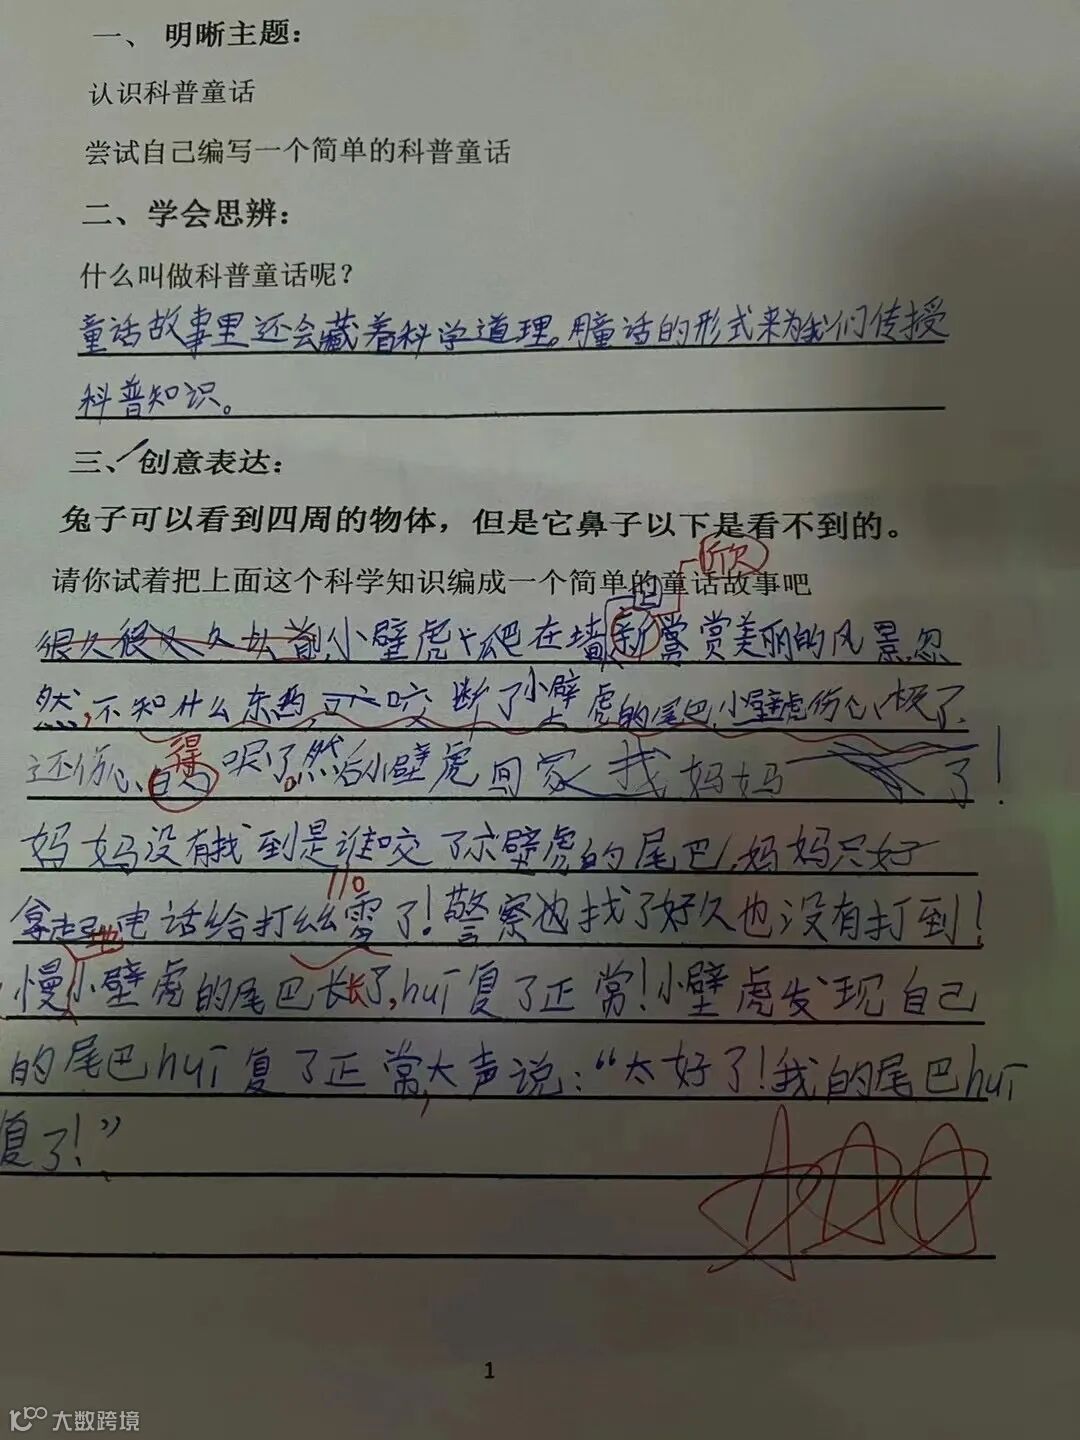 一、 明晰主题：
认识科普童话
尝试自己编写一个简单的科普童话
二、学会思辨：
什么叫做科普童话呢？
童话故事里还会藏着科学道理。用童话的形式来为我们传授
科普知识。
三、创意表达：
兔子可以看到四周的物体，但是它鼻子以下是看不到的。
欣
请你试着把上面这个科学知识编成一个简单的童话故事吧
上
很久很久以前小壁虎爬在墙新赏美丽的风景,忽
然,不知什么东西,一口咬断了小壁虎的尾巴,小壁虎伤心极了,
得
还伤心的哭了。然后小壁虎回家找妈妈了！
妈妈没有找到是谁咬了小壁虎的尾巴,妈妈只好
110
拿起电话给打了！警察也找了好久也没有打到！
地
慢小壁虎的尾巴长长了,huī复了正常！小壁虎发现自己
的尾巴huī复了正常,大声说：“太好了！我的尾巴huī
复了！”
1
大数跨境